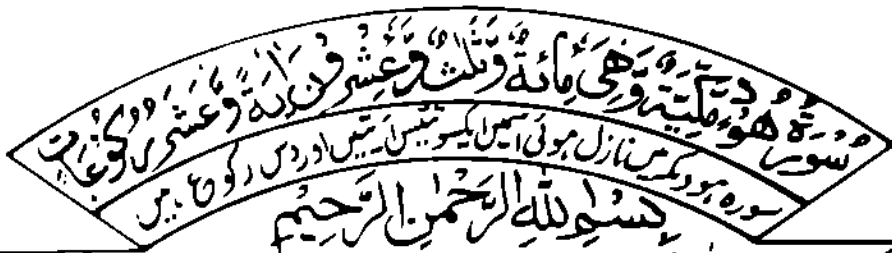 سُوْرَةُ هُوْدٍ مَكِّيَّةٌ وَّهِيَ مِائَةٌ وَّثَلٰثٌ وَّعِشْرُوْنَ اٰيَةً وَّعَشَرُ رُكُوْعَاتٍ
سورہ ہود مکہ میں نازل ہوئی اسمیں ایکسو تیئیس آیتیں اور دس رکوع ہیں
بِسْمِ اللّٰهِ الرَّحْمٰنِ الرَّحِيْمِ